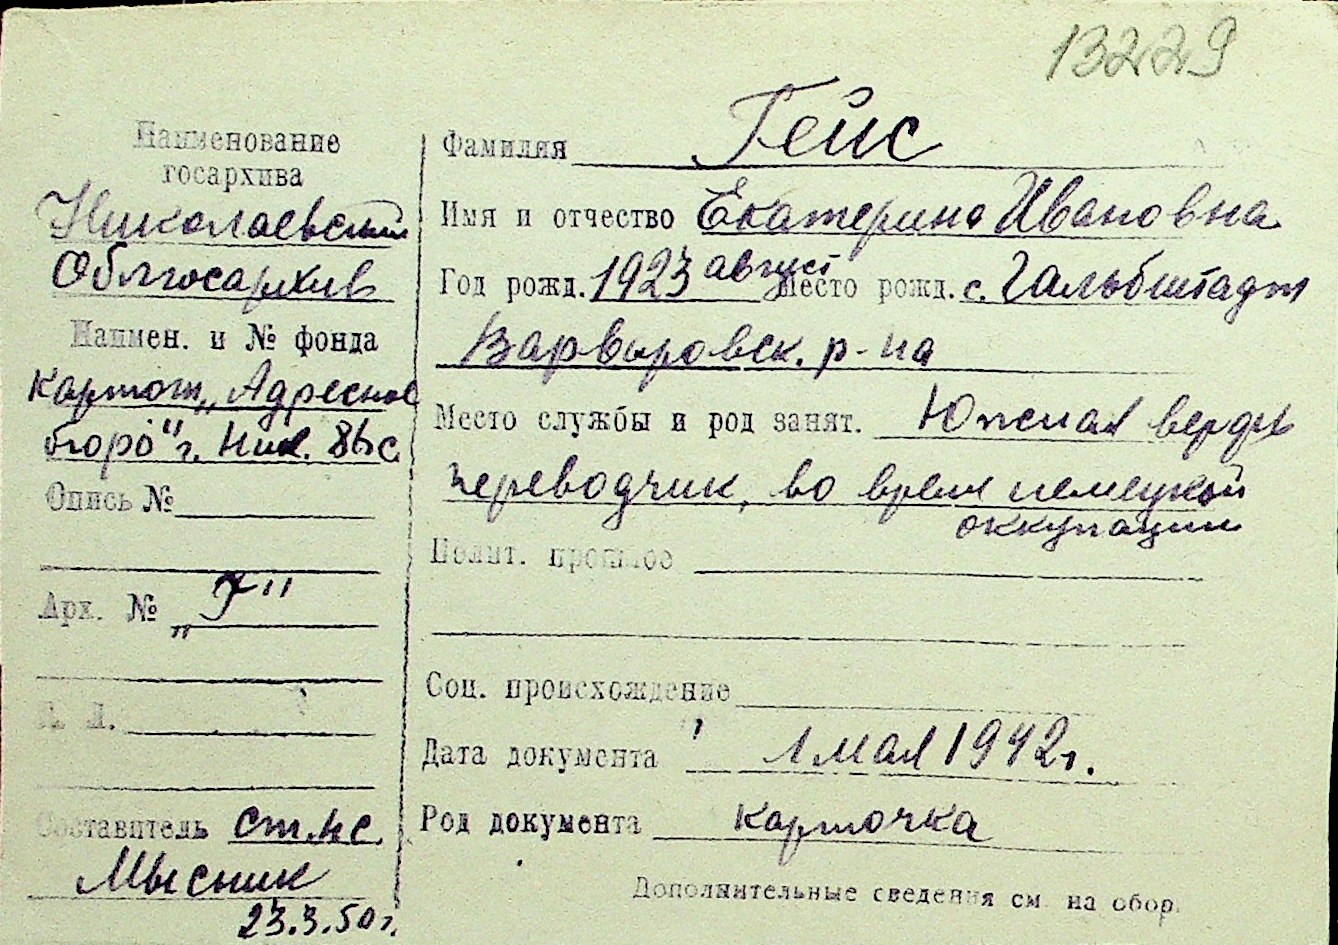 13229
Наименование
госархива
Николаевский
Облгосархив
Наимен. и № фонда
Картот. „Адресное
бюро" г. Ник. 86 с
Опись №
Арх. № „Г"
Л. Л.
Составитель ст. н с.
Мысник
23.3.50 г.
Фамилия Гейс
Имя и отчество Екатерина Ивановна
Год рожд. 1923 август Место рожд. с. Гальбштадт
Варваровск. р-на
Место службы и род занят. Южная верфь
переводчик, во время немецкой
оккупации
Полит. прошлое
Соц. происхождение
Дата документа 1 мая 1942 г.
Род документа карточка
Дополнительные сведения см. на обор.